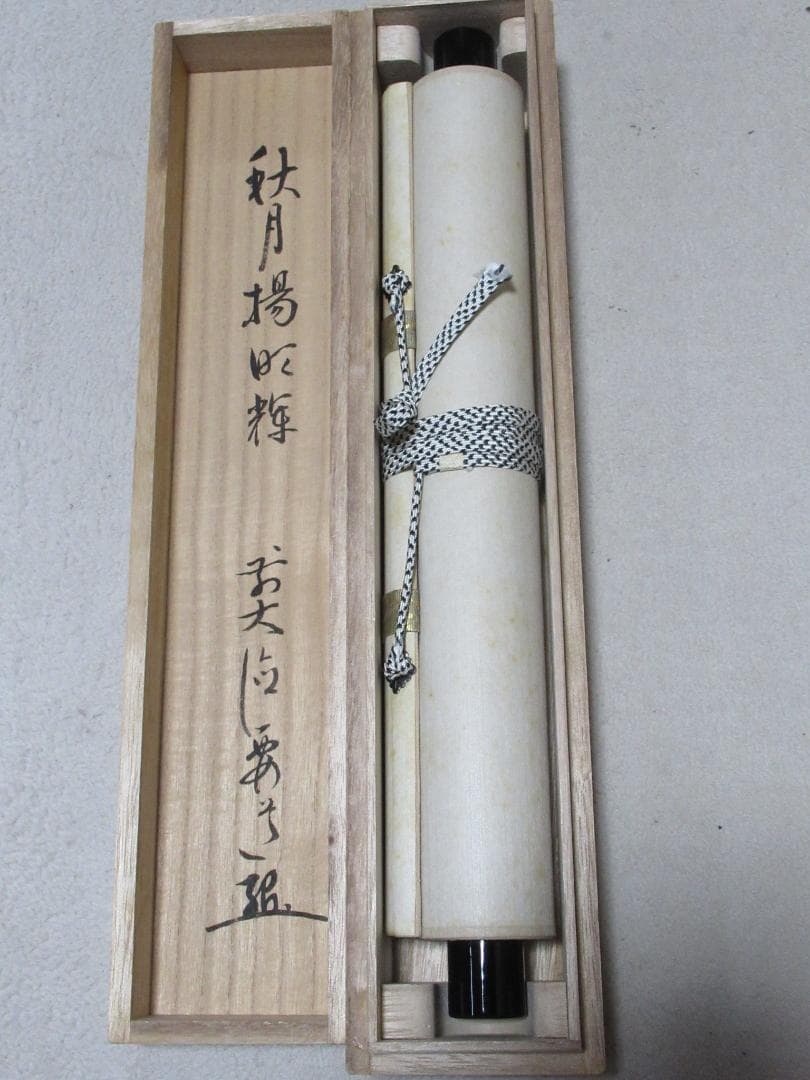 秋月揚明輝
前大徳要道